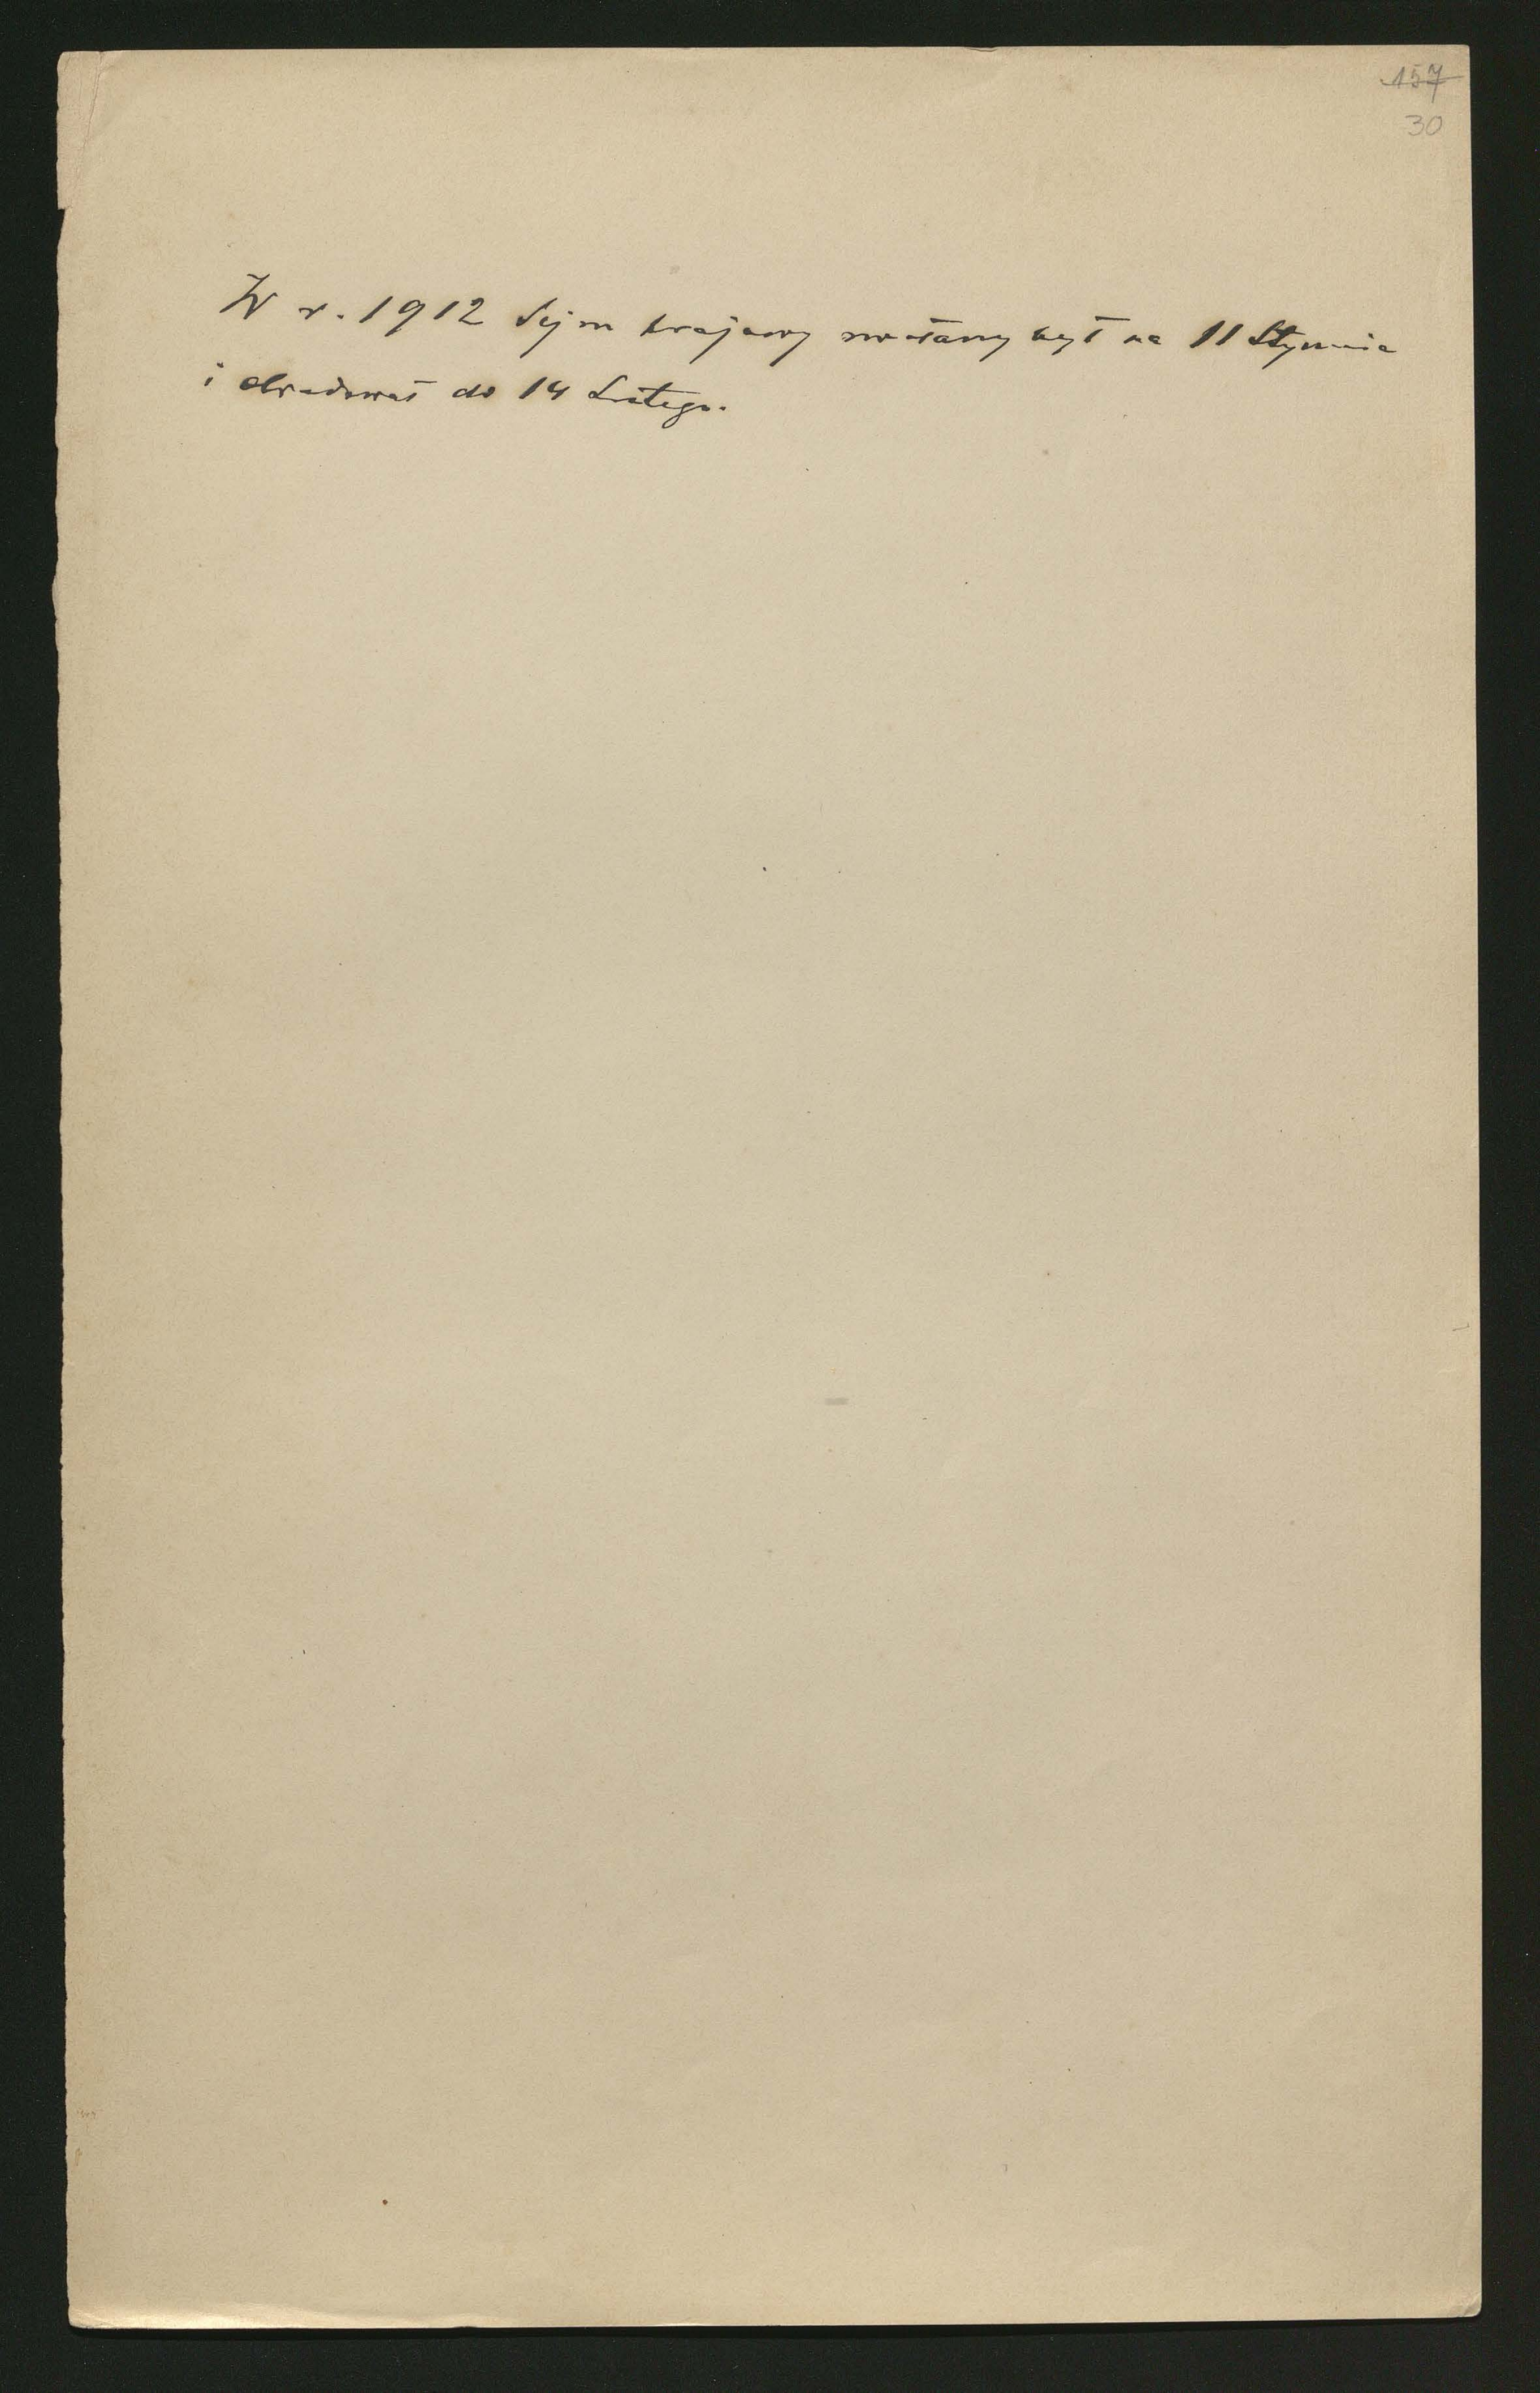 157
30
W r. 1912 Sejm krajowy zwołany był na 11 Stycznia
i obradował do 14 Lutego.